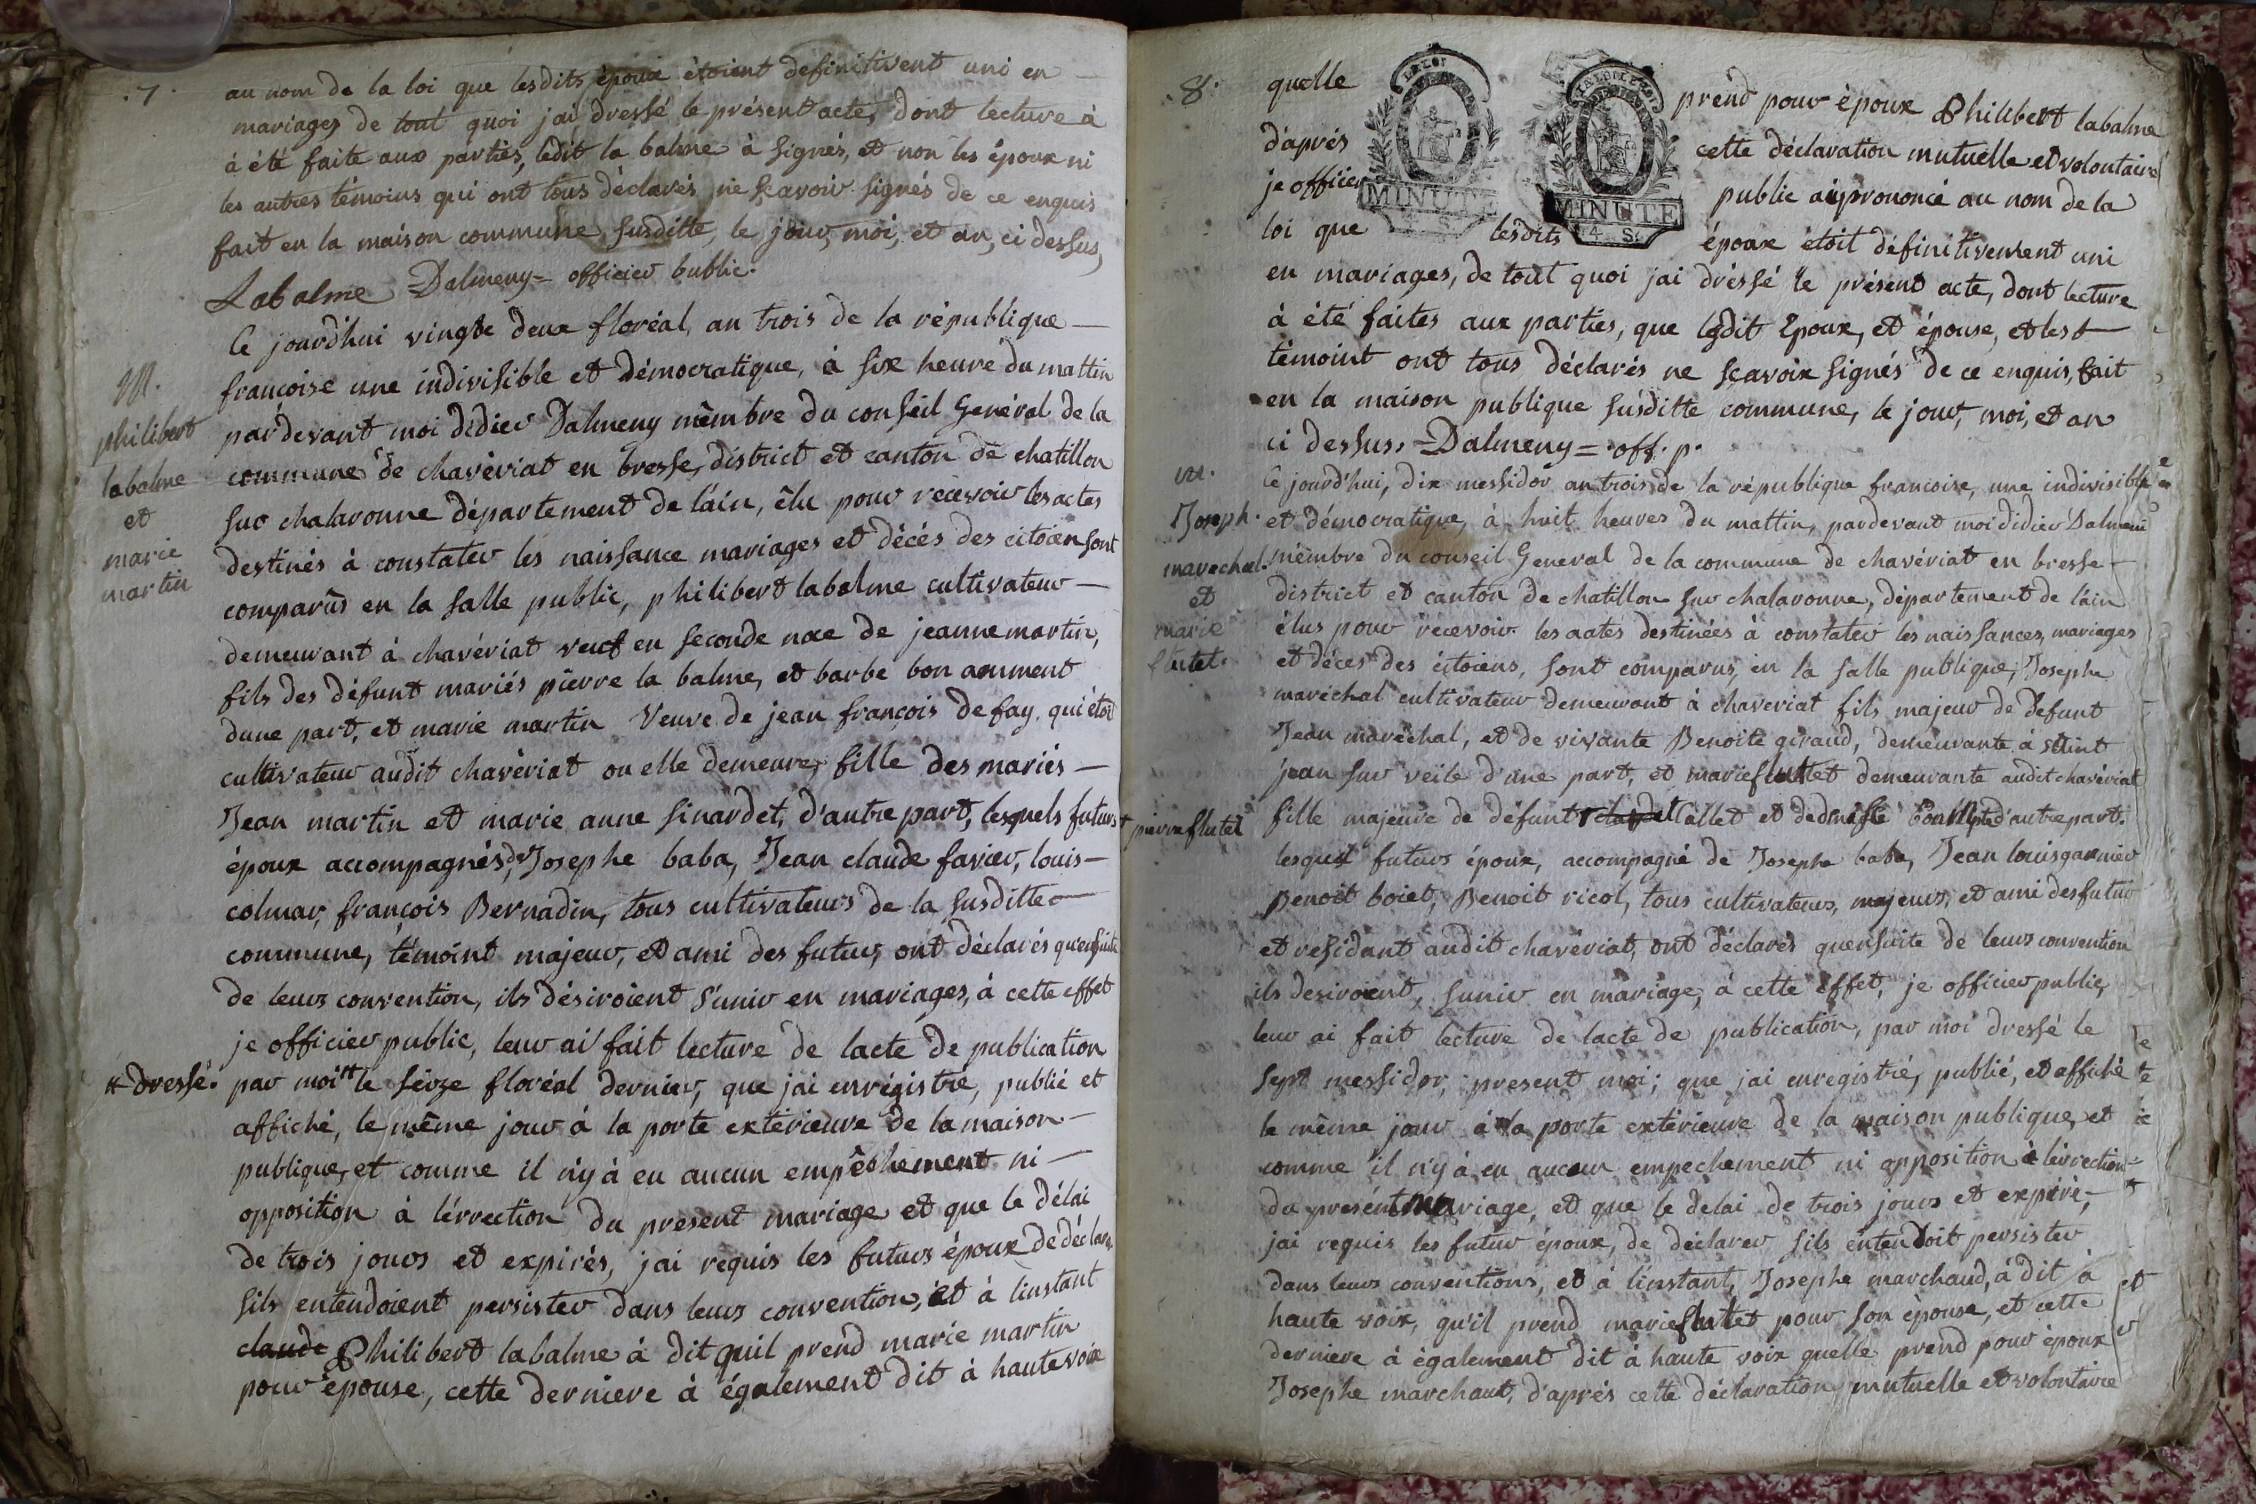 .7.
au nom de la loi que lesdits époux étoient definitivent uni en
mariages de tout quoi jai dressé le présent acte, dont lecture à
à été faite aux parties, ledit la balme à signés, et non les époux ni
les autres témoins qui ont tous déclarés ne sçavoir signés de ce enquis
fait en la maison commune susditte, le jour, moi, et an, ci dessus,
Labalme Dalmeny = officier public.
M.
philibert
labalme
et
marie
martin
Ce jourd'hui vingte deux floréal, an trois de la république
françoise une indivisible et démocratique, à six heure du mattin
pardevant moi didier Dalmeny mêmbre du conseil Genéral de la
commune de chavériat en bresse, district et canton de chatillon
sur chalaronne département de l'ain, êlu pour recevoir les actes
destinés à constater les naissance mariages et décés des citoien sont
comparûs en la salle public, philibert labalme cultivateur
demeurant à chavériat veuf en seconde noce de jeanne martin,
fils des défunt mariés pierre la balme, et barbe bon amment
dune part, et marie martin Veuve de jean françois defay, qui étoit
cultivateur audit chavériat ou elle demeure, fille des mariés
Jean martin et marie anne sinardet, d'autre part, lesquels futurs
époux accompagnés de Josephe baba, Jean claude favier, louis
colmar, françois Bernadin, tous cultivateurs de la susditte
commune, témoint majeur, et ami des futurs, ont déclarés qu'ensuite
de leurs convention, ils désiroient s'unir en mariages, à cette effet
je officier public, leur ai fait lecture de lacte de publication
# dressé. par moi # le séize floréal dernier, que jai enrégistré, publié et
affiché, le même jour à la porte extérieure de la maison
publique, et comme il n'y à eu aucun empêchement ni
opposition à lérrection du present mariage et que le délai
de trois jours et expirés, jai requis les futurs époux de déclarer
sils entendoient persister dans leurs convention, et à linstant
claude Philibert labalme à dit quil prend marie martin
pour épouse, cette derniere à également dit à haute voix
.8.
quelle prend pour époux Philibert labalme
LA LOI
LA LOI LE ROI
d'aprés cette déclaration mutuelle et volontaire
je officier public ai prononcé au nom de la
MINUTE
4 S.
MINUTE
4 S.
loi que lesdits époux étoit définitivement uni
en mariages, de tout quoi jai dréssé le présent acte, dont lecture
à été faites aux parties, que ledit Epoux, et épouse, et les
témoint ont tous déclarés ne sçavoir signés de ce enquis, fait
en la maison publique susditte commune, le jour, moi, et an
ci dessus, = Dalmeny = off. p.
m.
Joseph
marechal
et
marie
flutet.
Ce jourd'hui, dix messidor an trois de la république francoise, une indivisible
et démocratique, à huit heures du mattin, pardevant moi didier Dalmeni
mêmbre du conseil General de la commune de chavériat en bresse
district et canton de chatillon sur chalaronne, département de l'ain
élus pour recevoir les actes destinées à constater les naissances, mariages
et déces des citoiens, sont comparus, en la salle publique, Josephe
maréchal cultivateur demeurant à chaveriat fils majeur de défunt
Jean maréchal, et de vivante Benoite giraud, demeurante à saint
jean sur veile d'une part, et marie flutet demeurante audit chavériat
+ pierre flutet
fille majeure de défunt + et de d'autre part.
lesquel futurs époux, accompagné de Josephe baba, Jean louis garnier
Benoit boiet, Benoit ricol, tous cultivateurs, majeurs, et ami des futur
et residant audit chavériat, ont déclarés quensuite de leurs convention
ils desiroient, sunir en mariage, à cette effet, je officier public,
leur ai fait lecture de lacte de publication, par moi dressé le
sept messidor, present moi; que jai enregistré, publié, et affiché
le même jour à la porte extérieure de la maison publique, et
comme il n'y à eu aucun empechement ni opposition à lérrection
du present mariage, et que le delai de trois jours et expiré,
jai requis les futur époux, de déclarer sils entendoit persister
dans leurs conventions, et à linstant, Josephe marchaud, à dit à
haute voix, qu'il prend marie flutet pour son épouse, et cette
derniere à également dit à haute voix quelle prend pour époux
Josephe marchaut, d'aprés cette déclaration mutuelle et volontaire